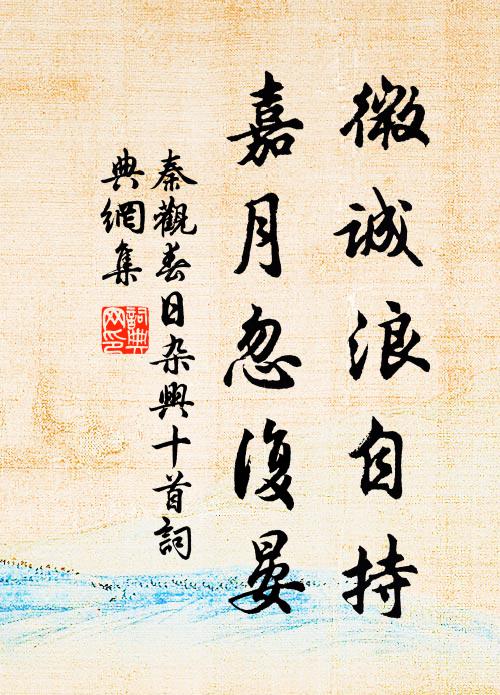 微誠浪自持
嘉月忽復晏
秦觀春日杂興十首詞
典網集
詞典
网印